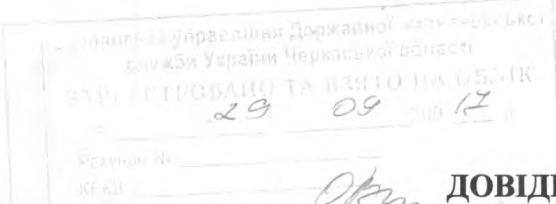 управління Державної казначейської
служби України Черкаської області
ЗАРЕЄСТРОВАНО ТА ВЗЯТО НА ОБЛІК
29 09 17
Рахунок №
КПКВ
ДОВІД